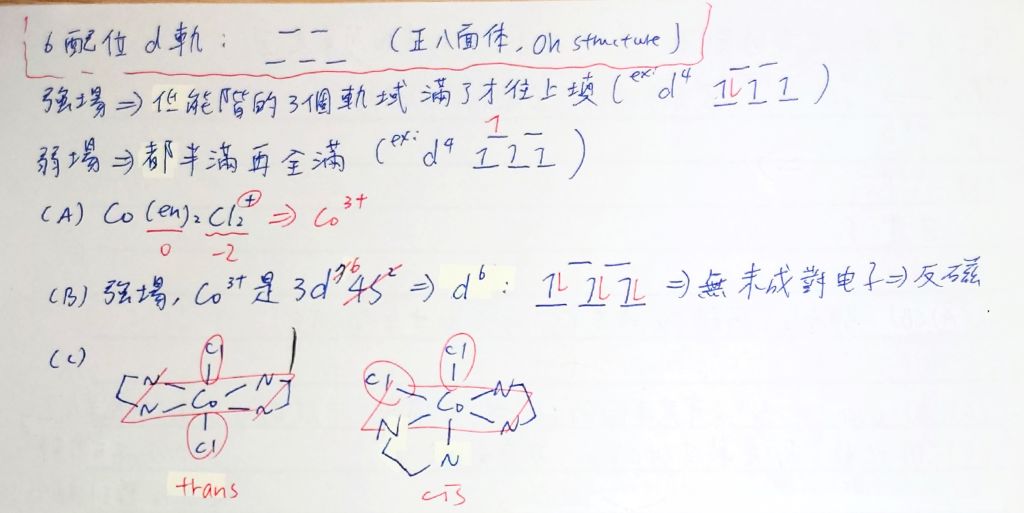 6配位 d軌: (正八面体, Oh structure)
強場⇒低能階的3個軌域滿了才往上填 (ex: d4 )
弱場⇒都半滿再全滿 (ex: d4 )
(A) Co(en)2Cl2+ ⇒ Co3+
0 -2
(B) 強場, Co3+是3d7 6 4S2 ⇒ d6: ⇒無未成對电子⇒反磁
(C)
Cl Cl
N N Cl N
Co Co
N N N N
Cl N
trans cis